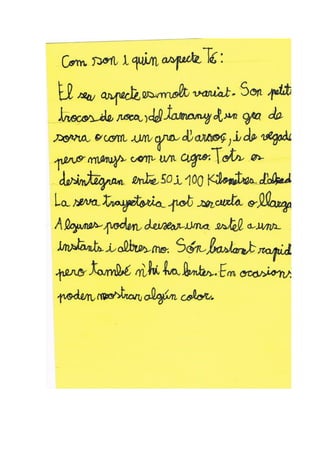 Com son i quin aspecte Té:
El seu aspecte es molt variat. Son petits
trocos de roca, del tamany d'un gra de
sorra o com un gra d'arroç, i de vegade
pero menys com un cigro. Tots es
desintegran entre 50 i 100 Kilometres d'alçad
La seva trayectoria pot ser curta o llarga
Algunes poden deixar una estel a uns
instants i altres no. Són bastant rapid
pero també n'hi ha lentes. En ocasions
poden mostrar algún color.